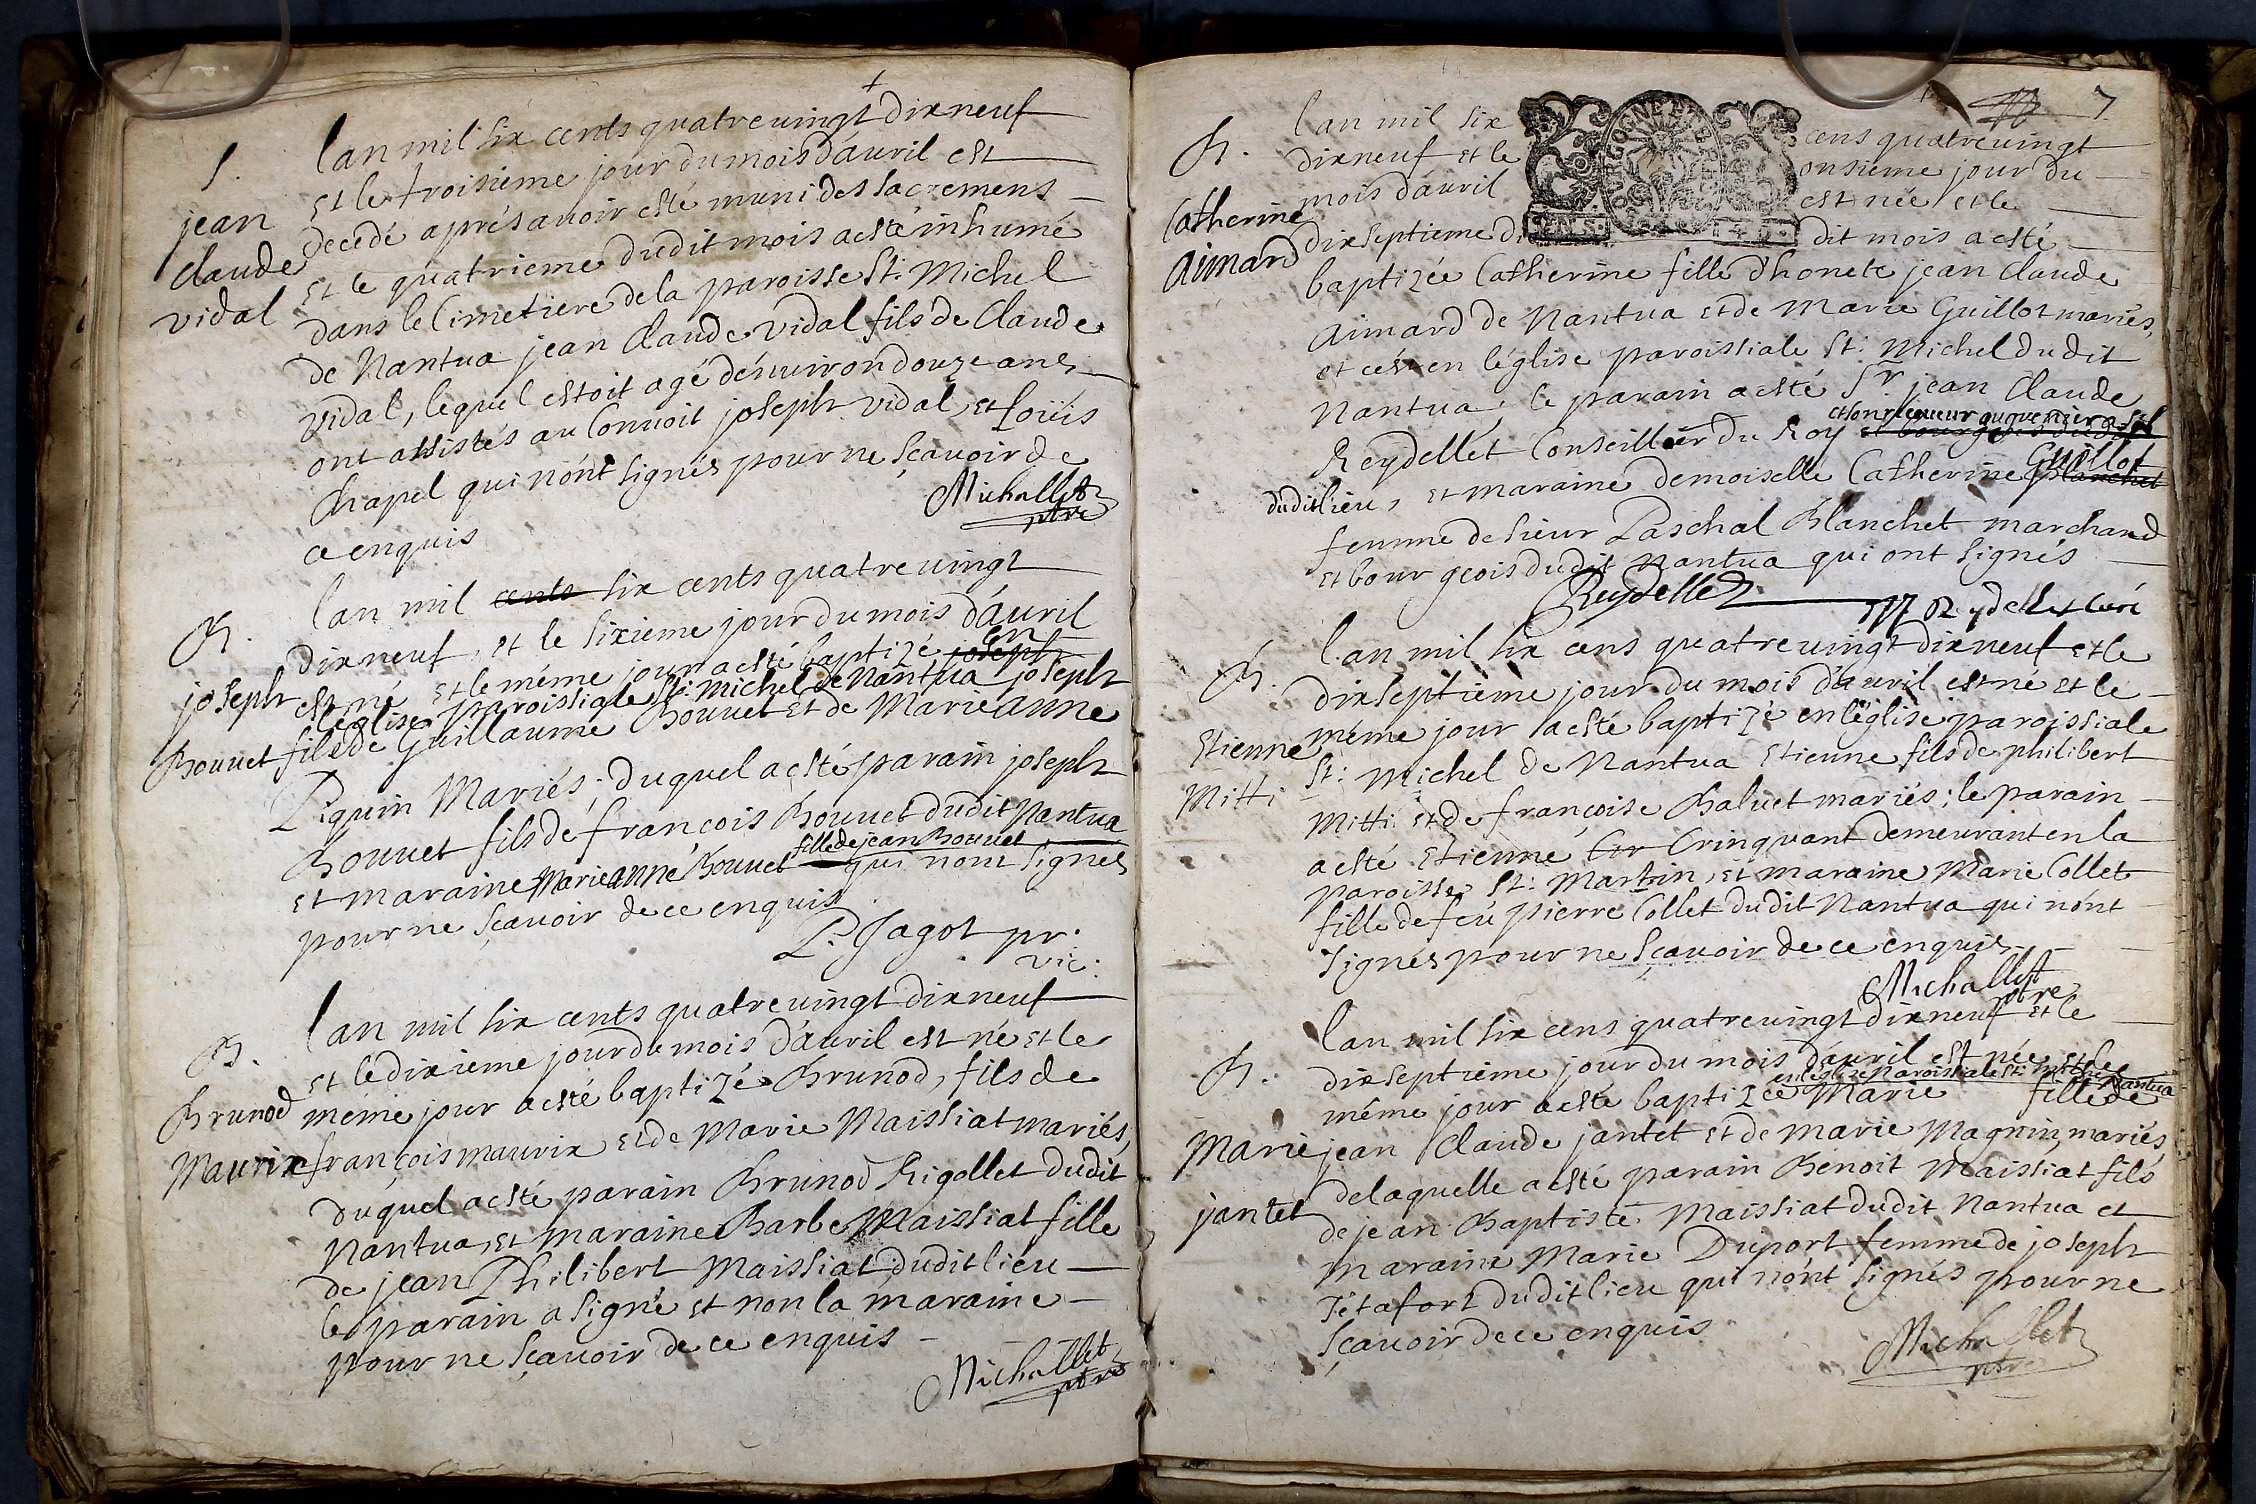 S.
jean
claude
vidal
lan mil six cents quatrevingt dixneuf
et le troisieme jour du mois dauril est
decedé aprés auoir esté muni des sacremens
et le quatrieme dudit mois a esté inhumé
dans le Cimetiere de la paroisse St: Michel
de Nantua jean Claude vidal fils de Claude
vidal, lequel estoit agé d'enuiron douze ans
ont assistés au Conuoit joseph vidal, et Loüis
Chapel qui n'ont signés pour ne sçauoir de
ce enquis
Michallet
ptre
B.
joseph
Bouuet
lan mil cents six cents quatreuingt
dixneuf, et le sixieme jour du mois d'auril
est né et le méme jour a esté baptizé joseph en
léglise paroissiale St: Michel de Nantua joseph
fils de Guillaume Bouuet et de Marie anne
Piquin Mariés; duquel a esté parain joseph
Bouuet fils de françois Bouuet dudit Nantua
et maraine Marie anne Bouuet fille de jean Bouuet qui nont signés
pour ne sçauoir de ce enquis
P. Jagot pr.
vic:
B.
Brunod
Maurix
lan mil six cents quatreuingt dixneuf
et le dixieme jour du mois d'auril est né et le
méme jour a esté baptizé Brunod, fils de
françois maurix et de Marie Maissiat mariés,
duquel a esté parain Brunod Rigollet dudit
Nantua, et maraine Barbe Maissiat fille
de jean Philibert Maissiat dudit lieu
le parain a signé et non la maraine
pour ne sçauoir de ce enquis
Michallet
ptre
7
B.
Catherine
Aimard
lan mil six cens quatreuingt
dixneuf et le onsieme jour du
mois dauril est née et le
dixseptieme dudit mois a esté
baptizée Catherine fille d'honete jean Claude
Aimard de Nantua et de Marie Guillot mariés,
et ce en léglise paroissiale St: Michel dudit
Nantua, le parain a esté Sr jean Claude
Reydellet Conseiller du Roy
dudit lieu, et maraine demoiselle Catherine Guillot Blanchet
femme de sieur Paschal Blanchet marchand
et bourgeois dudit Nantua qui ont signés
Reydellet
Reydellet curé
B.
Etienne
Mitti
lan mil six cens quatreuingt dixneuf et le
dixseptieme jour du mois d'auril est né et le
méme jour a esté baptizé en léglise paroissiale
St: Michel de Nantua Etienne fils de philibert
Mitti et de françoise Baluet mariés; le parain
a esté Etienne Crinquant demeurant en la
paroisse St: Martin, et maraine Marie Collet
fille de feu pierre Collet dudit Nantua qui n'ont
signés pour ne sçauoir de ce enquis
Michallet
ptre
B.
Marie
jantet
lan mil six cens quatreuingt dixneuf et le
dixseptieme jour du mois dauril est née et le
en léglise paroissiale St: Michel de Nantua
méme jour a esté baptizée Marie fille de
jean Claude jantet et de Marie Magnin mariés
de laquelle a esté parain Benoit Maissiat fils
de jean Baptiste Maissiat dudit Nantua et
maraine Marie Duport femme de joseph
Tétafort dudit lieu qui n'ont signés pour ne
sçauoir de ce enquis
Michallet
ptre